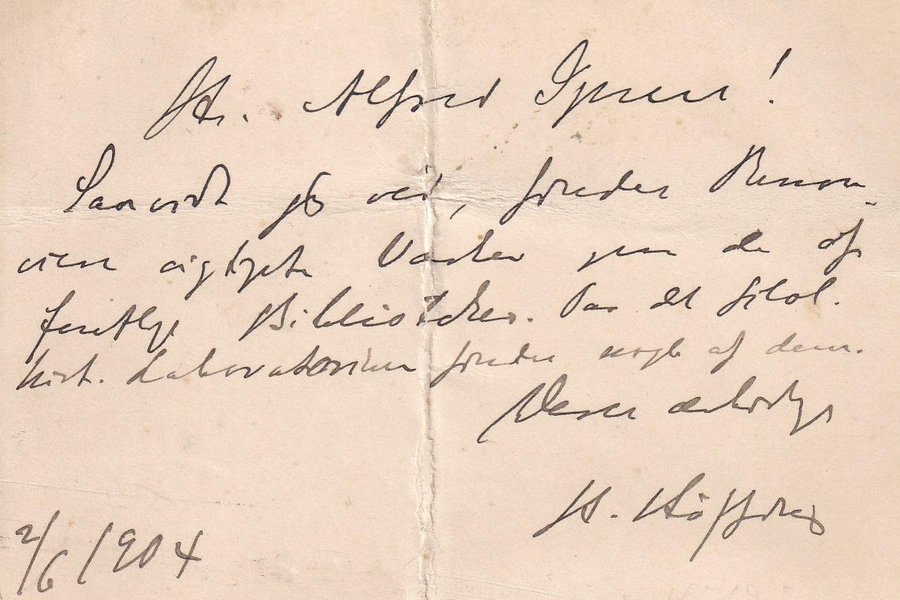 Hr. Alfred Ipsen!
Saavidt jeg ved, findes Renou-
viers vigtigste Værker paa de of-
fentlige Bibliotheker. Paa det filol.
hist. Laboratorium findes nogle af dem.
Deres ærbødige
H. Høffding
2/6 1904